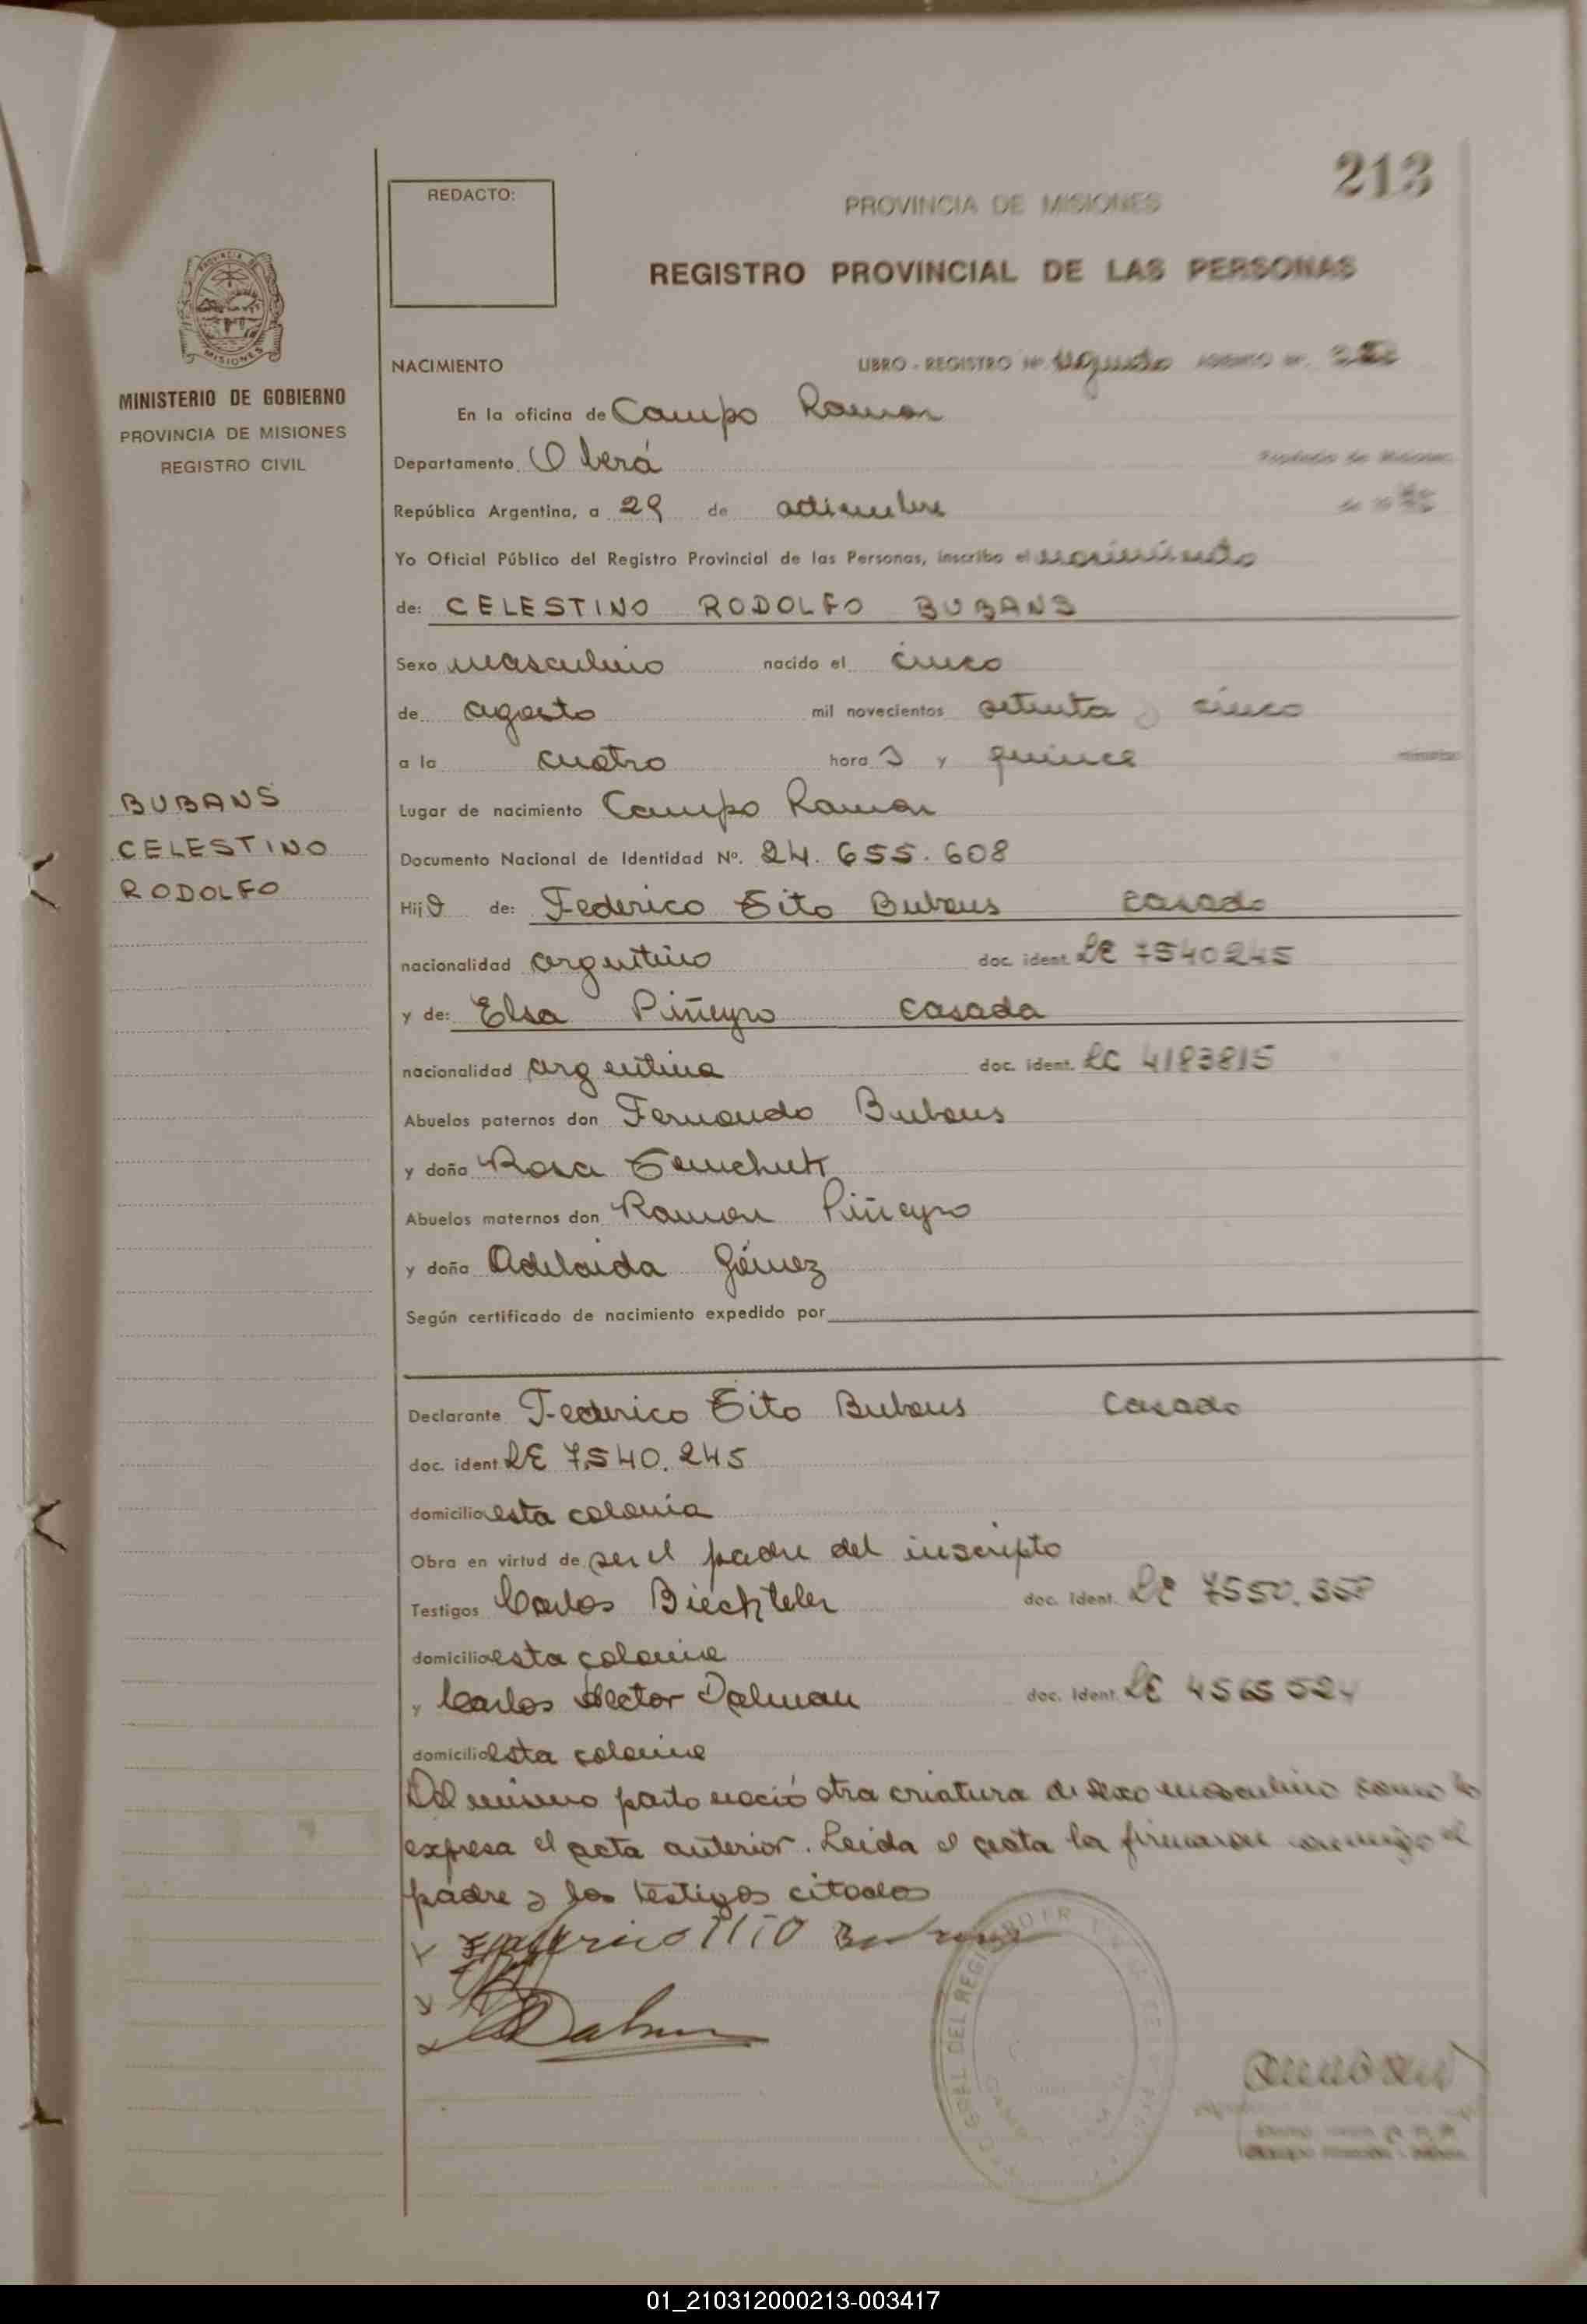 213
REDACTO:
PROVINCIA DE MISIONES
REGISTRO PROVINCIAL DE LAS PERSONAS
MISIONES
MINISTERIO DE GOBIERNO
PROVINCIA DE MISIONES
REGISTRO CIVIL
BUBANS
CELESTINO
RODOLFO
NACIMIENTO LIBRO - REGISTRO Nº segundo
En la oficina de Campo Ramon
Departamento Oberá
República Argentina, a 29 de setiembre
Yo Oficial Público del Registro Provincial de las Personas, inscribo el nacimiento
de: CELESTINO RODOLFO BUBANS
Sexo masculino nacido el cinco
de agosto mil novecientos setenta y cinco
a la cuatro hora s y quince
Lugar de nacimiento Campo Ramon
Documento Nacional de Identidad Nº. 24.655.608
Hijo de: Federico Tito Bubans casado
nacionalidad argentino doc. ident. LE 7540245
y de: Elsa Piñeyro casada
nacionalidad argentina doc. ident. LC 4183815
Abuelos paternos don Fernando Bubans
y doña Rosa Temchuk
Abuelos maternos don Ramon Piñeyro
y doña Adelaida Gómez
Según certificado de nacimiento expedido por
Declarante Federico Tito Bubans casado
doc. ident. LE 7540.245
domicilio esta colonia
Obra en virtud de ser el padre del inscripto
Testigos Carlos Biechteler doc. ident. LE 7550.
domicilio esta colonia
y Carlos Hector Dalman doc. ident. LE 4565
domicilio esta colonia
Del mismo parto nació otra criatura de sexo masculino como lo
expresa el acta anterior. Leida el acta la firmaron conmigo el
padre y los testigos citados
01_210312000213-003417